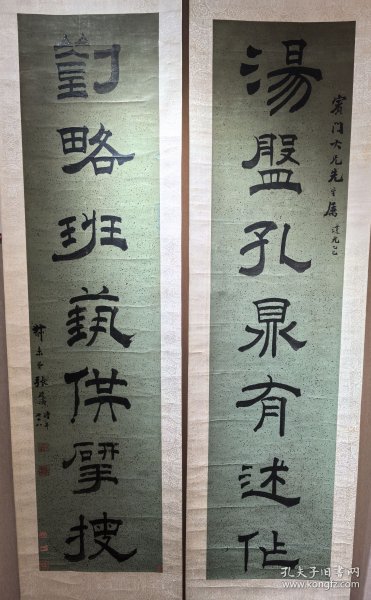 湯盤孔鼎有述作
賓門大兄先生屬
劉略班藝供揅搜
孔夫子旧书网
www.kongfz.com